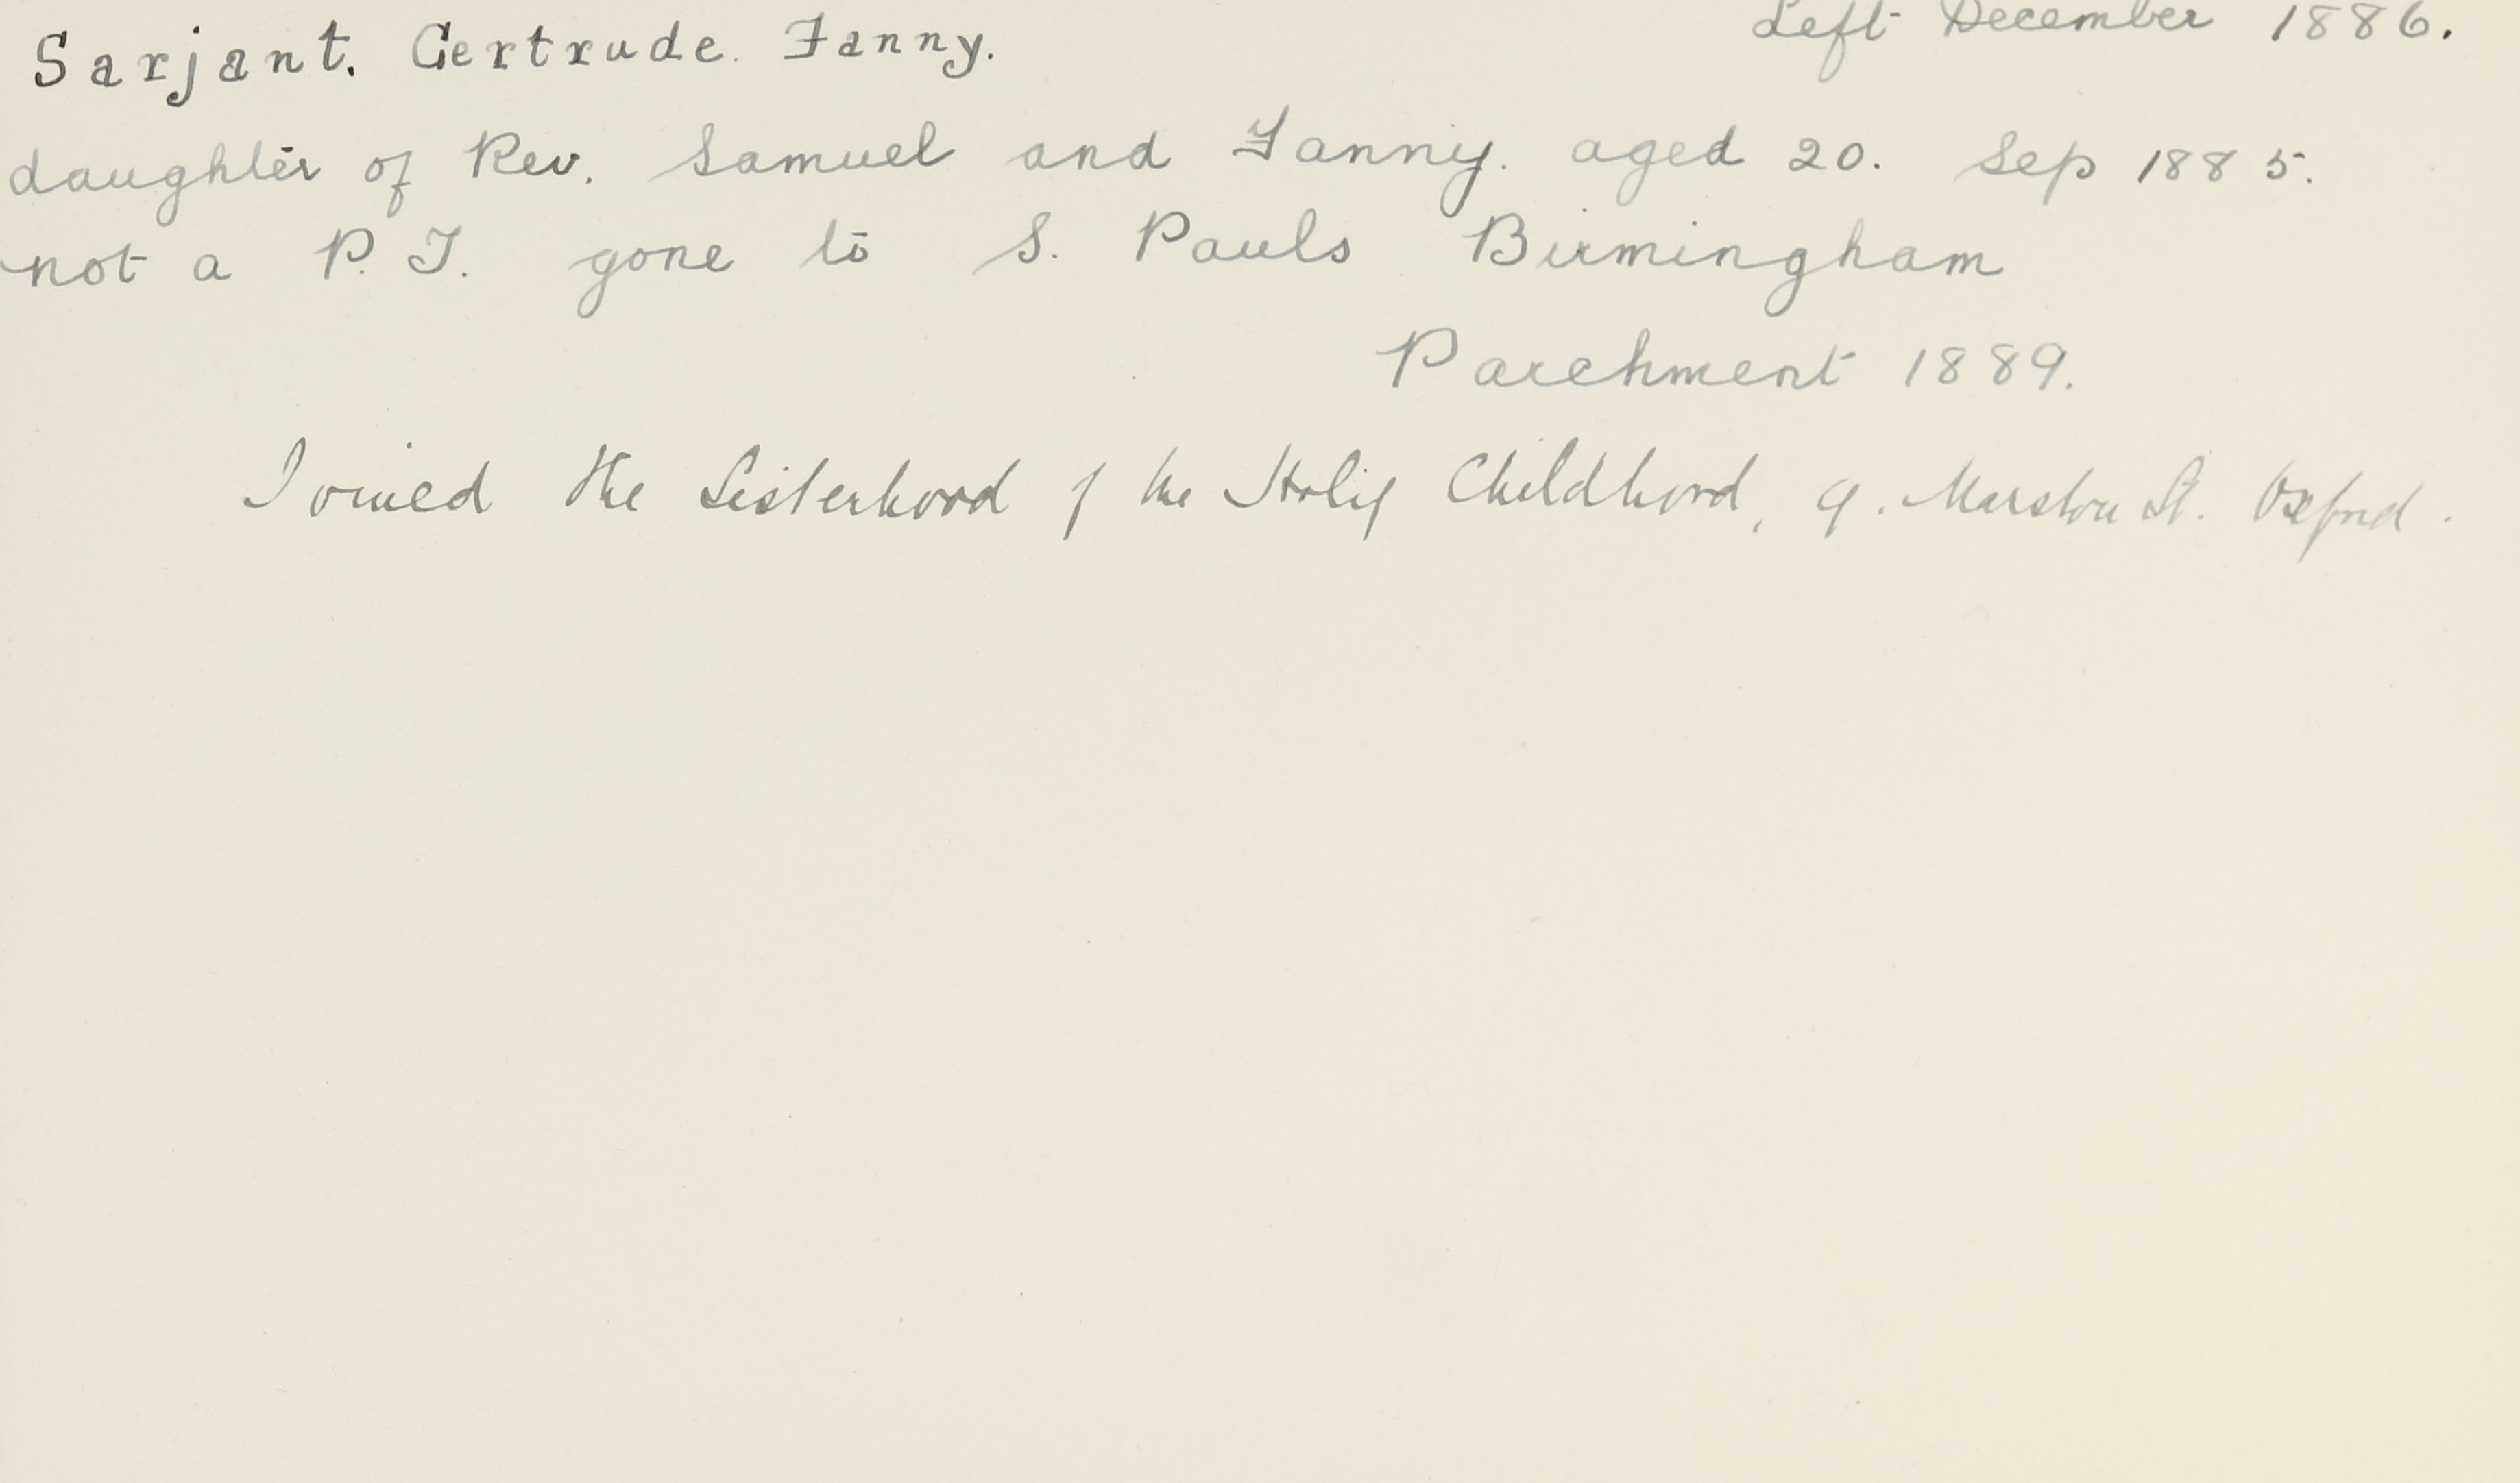 Sarjant. Gertrude. Fanny. Left December 1886.
daughter of Rev. Samuel and Fanny. aged 20. Sep 1885.
not a P. T. gone to S. Pauls Birmingham
Parchment 1889.
Joined the Sisterhood of the Holy Childhood, 9. Marston St. Oxford.